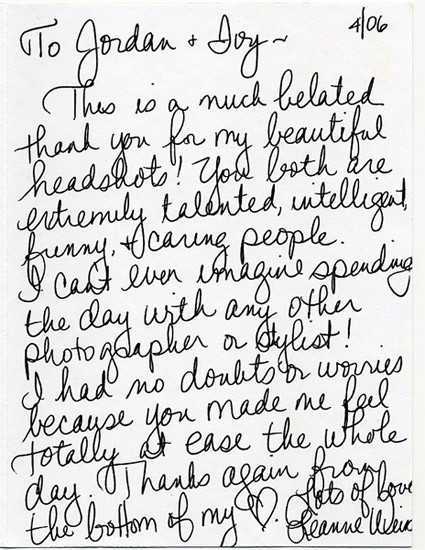 4/06
To Jordan + Ivy ~
This is a much belated
thank you for my beautiful
headshots! You both are
extremely talented, intelligent,
funny, & caring people.
I can't even imagine spending
the day with any other
photographer or stylist!
I had no doubts or worries
because you made me feel
totally at ease the whole
day. Thanks again from
the bottom of my ♡.
Lots of Love
Leanne